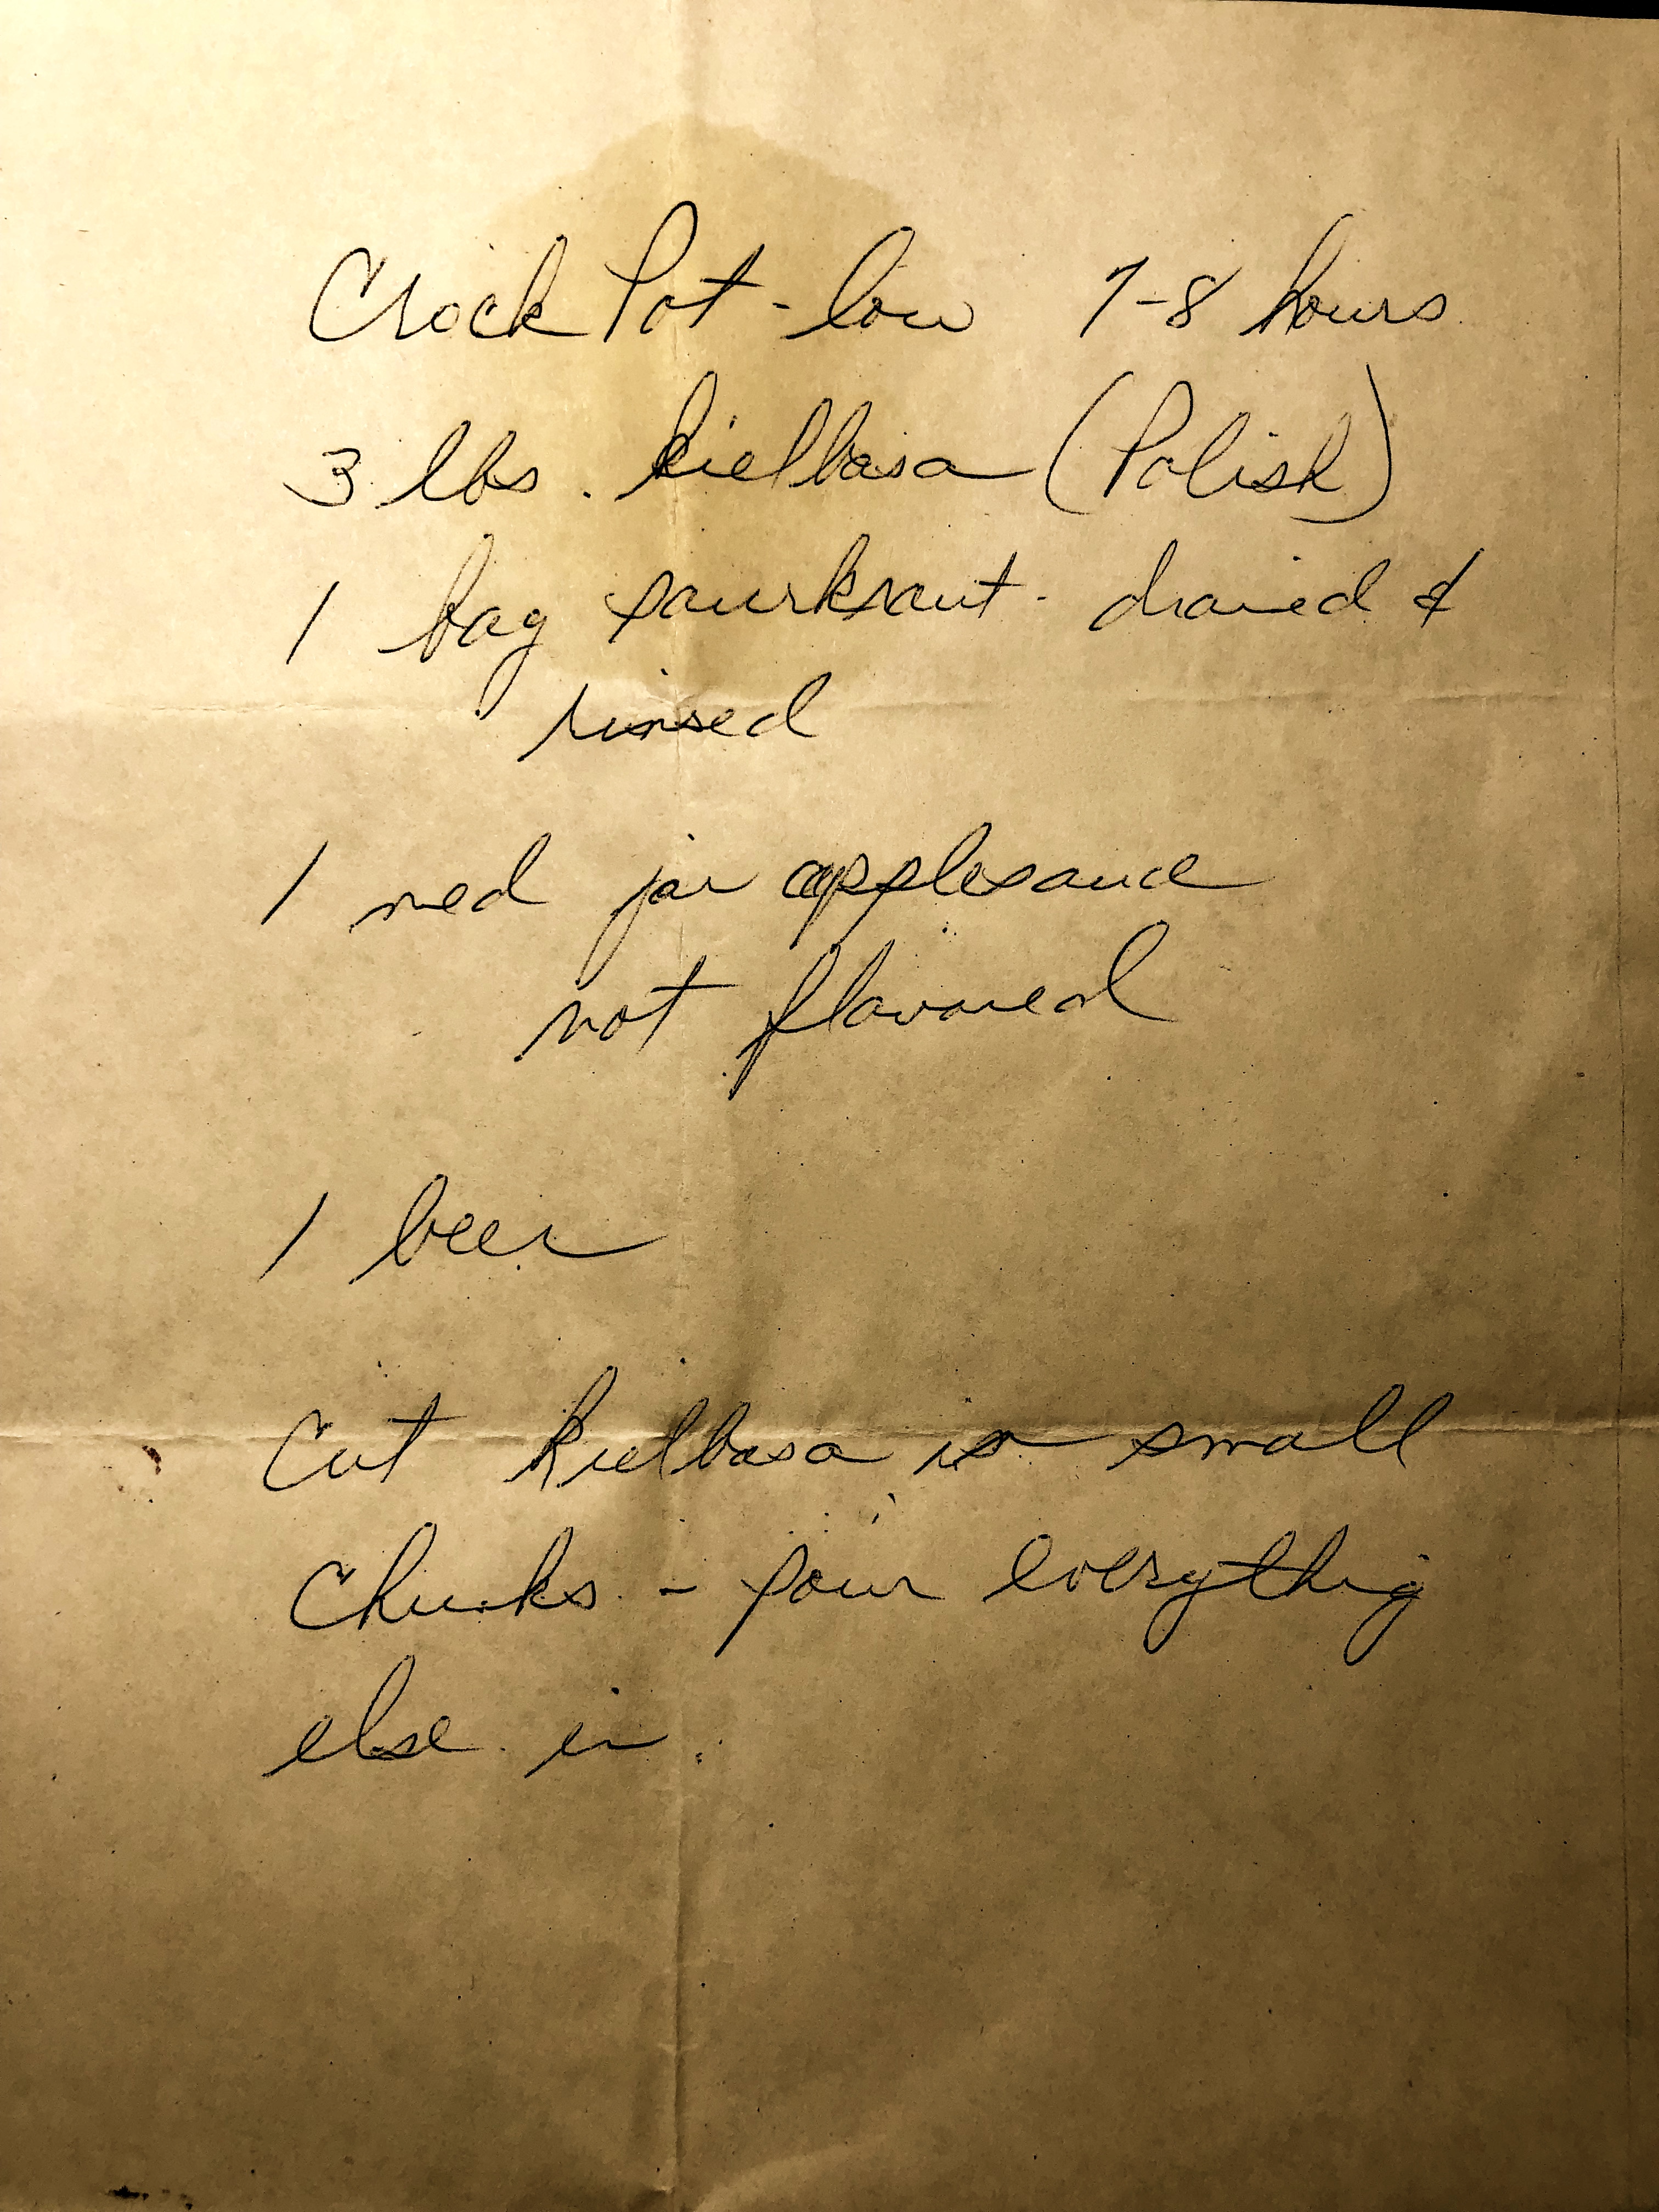 Crock Pot - low 7-8 hours
3 lbs. kielbasa (Polish)
1 bag saurkraut - drained &
rinsed
1 med jar applesauce
not flavored
1 beer
Cut kielbasa in small
chunks - pour everything
else in.